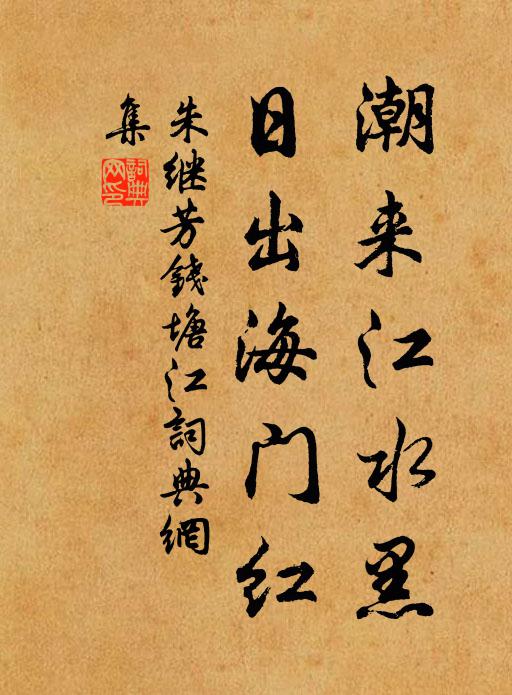 潮来江水黑
日出海门红
朱继芳钱塘江詞典網
集
詞典
网印